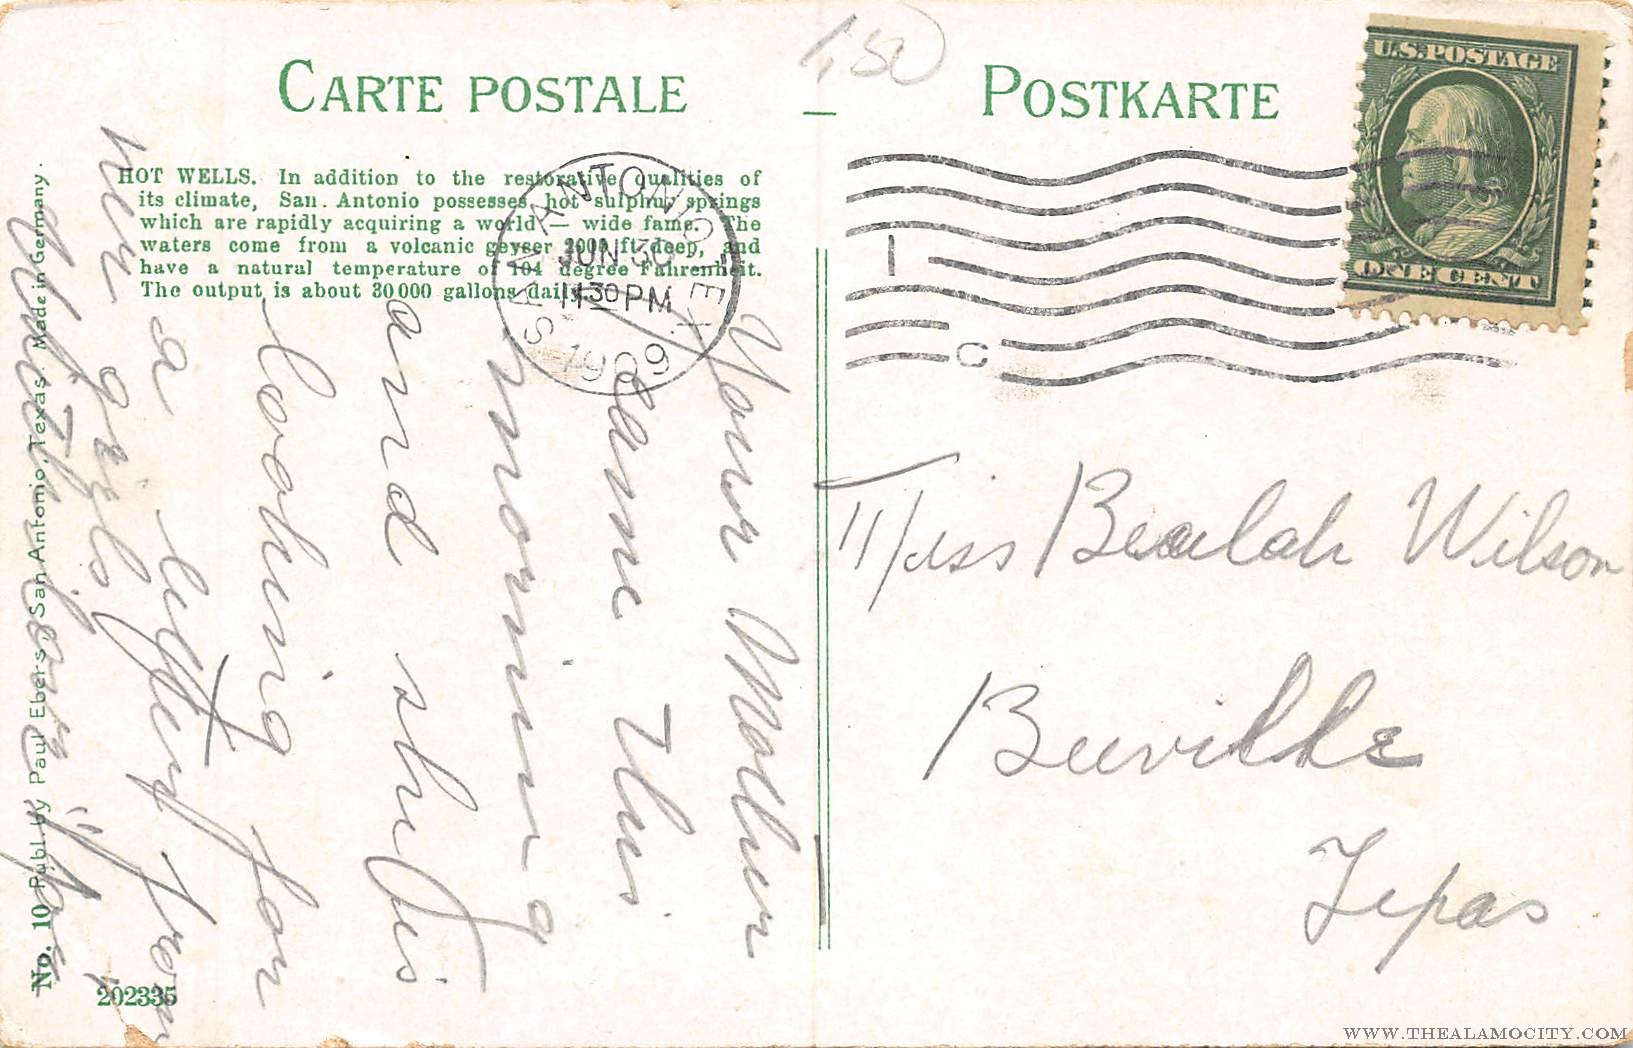 CARTE POSTALE
POSTKARTE
1,50
U.S. POSTAGE
ONE CENT
HOT WELLS. In addition to the restorative qualities of
its climate, San. Antonio possesses hot sulphur springs
which are rapidly acquiring a world — wide fame. The
waters come from a volcanic geyser 2000 ft. deep, and
have a natural temperature of 104 degree Fahrenheit.
The output is about 30000 gallons daily.
SAN ANTONIO TEX
JUN 30
11:30 PM
1909
I
C
Your Mother
came this
morning
and she is
looking for
a letter from
her girls
With love
"Joe"
Miss Beulah Wilson
Beeville
Texas
No. 10 Publ. by Paul Ebers, San Antonio, Texas. Made in Germany.
202335
WWW.THEALAMOCITY.COM